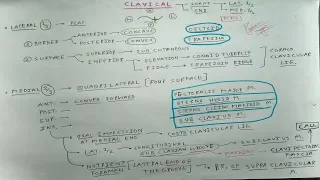 CLAVICAL
LATERAL 1/3 → FLAT
② BORDER → ANTERIOR : CONCAVE
POSTERIOR : CONVEX
DELTOID
TRAPEZIUS
② SURFACE → SUPERIOR → SUB CUTANEOUS
INFERIOR → ELEVATION → CONOID TUBERCLE
RIDGE → TRAPEZOID RIDGE
CORACO CLAVICULAR LIG.
MEDIAL 2/3 → QUADRILATERAL [FOUR SURFACE]
ANT. → CONVEX FORWARD
POST.
SUP.
INF.
PECTORALIS MAJOR M.
STERNO HYOID M.
STERNO CLEIDO MASTOID M.
SUB CLAVIUS M.
OVAL IMPRESSION AT MEDIAL END → COSTO CLAVICULAR LIG.
LAT. 1/2 → LONGITUDINAL SUB CLAVIAN GROOVE → SUBCLAVIUS M.
CLAVIPECTORAL FASCIA
NUTRIENT FORAMEN → [LATERAL END OF THE GROOVE] → BR. OF SUPRA CLAVICULAR A.